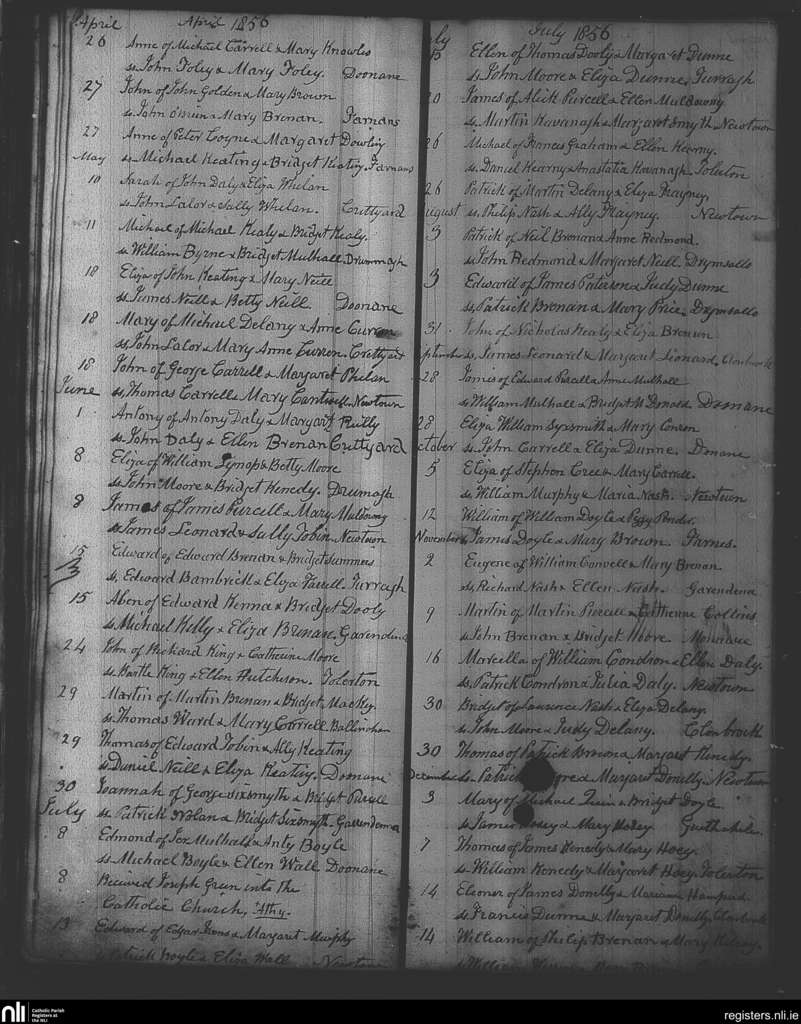 April April 1856
26 Anne of Michael Carrell & Mary Knowles
ss. John Foley & Mary Foley. Doonane
27 John of John Golden & Mary Brown
ss. John & Mary Brenan. Farnans
27 Anne of Peter Coyne & Margaret Dowling
May ss. Michael Keating & Bridget Keating. Farnans
10 Sarah of John Daly & Eliza Whelan
ss. John Lalor & Sally Whelan. Crettyard
11 Michael of Michael Kealy & Bridget Kealy.
ss. William Byrne & Bridget Mulhall. Drummagh
18 Eliza of John Keating & Mary Neill
ss. James Neill & Betty Neill. Doonane
18 Mary of Michael Delany & Anne Curren
ss. John Lalor & Mary Anne Curren. Crettyard
18 John of George Carrell & Margaret Phelan
June ss. Thomas Carrell & Mary Cantwell. Newtown
1 Antony of Antony Daly & Margaret Reilly
ss. John Daly & Ellen Brenan Crettyard
8 Eliza of William & Betty Moore
ss. John Moore & Bridget Kenedy. Drumagh
8 James of James Purcell & Mary Muldowny
ss. James Leonard & Sally Tobin. Newtown
15 Edward of Edward Brenan & Bridget Summers
ss. Edward Bambrick & Eliza Farrell. Turragh
15 Aben of Edward Kenna & Bridget Dooly
ss. Michael Kelly & Eliza Brenan. Garendena
24 John of Richard King & Catherine Moore
ss. Bartle King & Ellen Hutcheson. Tolerton
29 Martin of Martin Brenan & Bridget Mackey.
ss. Thomas Ward & Mary Carrell.
29 Thomas of Edward Tobin & Ally Keating
ss. Daniel Neill & Eliza Keating. Doonane
30 Joannah of George Sixsmyth & Bridget Purcell
July ss. Patrick Nolan & Bridget Sixsmyth. Garrendenna
8 Edmond of Jer Mulhall & Anty Boyle
ss. Michael Boyle & Ellen Wall Doonane
8 Received Joseph Grun into the
Catholic Church, Athy.
13 Edward of Edgar & Margaret Murphy
Patrick Boyle & Eliza Wall Newtown
July 1856
15 Ellen of Thomas Dooly & Margaret Dunne
ss. John Moore & Eliza Dunne. Turragh
20 James of Alick Purcell & Ellen Muldowny
ss. Martin Kavanagh & Margaret Smyth. Newtown
26 Michael of Francis Graham & Ellen Kearny.
ss. Daniel Kearny & Anastatia Kavanagh. Toleton
26 Patrick of Martin Delany & Eliza Trayney.
August ss. Philip Nash & Ally Trayney. Newtown
3 Patrick of Neil Brenan & Anne Redmond.
ss. John Redmond & Margaret Neill.
3 Edward of James Paterson & Judy Dunne
ss. Patrick Brenan & Mary Price.
31 John of Nicholas Kealy & Eliza Brenan
September ss. James Leonard & Margaret Leonard.
28 James of Edward Purcell & Anne Mulhall
ss. William Mulhall & Bridget McDonald Doonane
28 Eliza William Sixsmith & Mary Conron
October ss. John Carrell & Eliza Dunne. Donane
5 Eliza of Stephen Cree & Mary Carrell.
ss. William Murphy & Maria Nash. Newtown
12 William of William Doyle & Peggy Ponder.
November ss. James Doyle & Mary Brown. Farnes.
2 Eugene of William Conwell & Mary Brenan
ss. Richard Nash & Ellen Nash. Garendena
9 Martin of Martin Purcell & Catherine Collins
ss. John Brenan & Bridget Moore.
16 Marcella of William Condron & Ellen Daly.
ss. Patrick Condron & Julia Daly. Newtown
30 Bridget of Laurence Nash & Eliza Delany.
ss. John Moore & Judy Delany. Clonbrock
30 Thomas of Patrick Brenan & Margaret Kenedy.
December ss. Patrick & Margaret Donelly. Newtown
3 Mary of Michael Quin & Bridget Doyle
ss. James & Mary
7 Thomas of James Kenedy & Mary Hoey.
ss. William Kenedy & Margaret Hoey. Tolerton
14 Eleoner of James Donelly & Marianne
ss. Francis Dunne & Margaret Donelly.
14 William of Philip Brenan & Mary
ss. William
nli Catholic Parish Registers at the NLI
registers.nli.ie